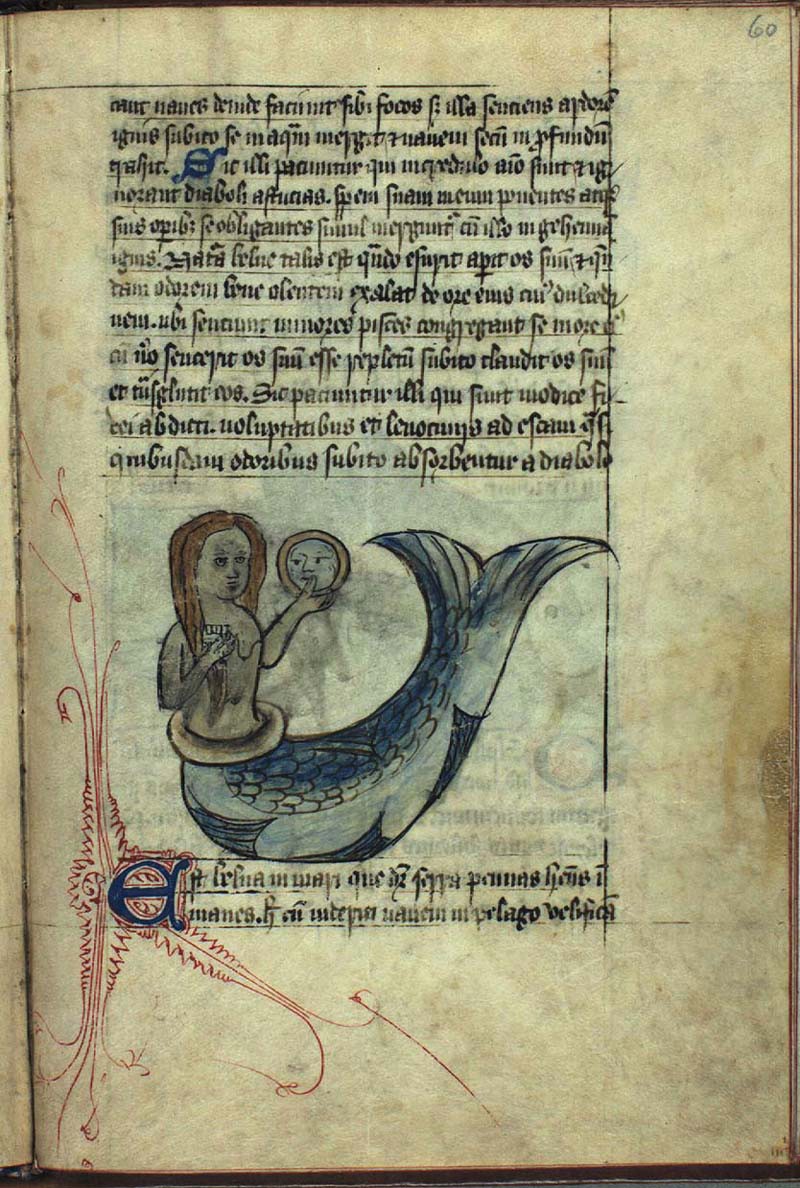 60
cant naues deinde faciunt sibi focos sꝫ illa senciens ardorē
ignis subito se in aquā mergit ⁊ nauem secū in ꝓfundū
trahit. Sic illi paciuntur qui incredulo aīo sunt ⁊ ig
norant diaboli astucias. spem suam in eum ponentes atqꝫ
suis oꝑibꝫ se obligantes simul mergunt᷑ cū illo in gehennā
ignis. Natᷓa belue talis est qn̄do esurit apit os suū ⁊ quē
dam odorem bene olentem exalat de ore eius cuiꝰ dulcedi
nem. ubi senciunt minores pisces congregant se in ore eꝰ
cū ūo senserit os suū esse repletū subito claudit os suū
et tͣnsglutit eos. Sic paciuntur illi qui sunt modice fi
dei abditi. uoluptatibus et lenociniis ad escam qͣsi
quibusdam odoribus subito absorbentur a diabolo
Est belua in mari que dꝛ serra pennas hēns ī
manes. h̄ cū uiderit nauem in pelago uelificā